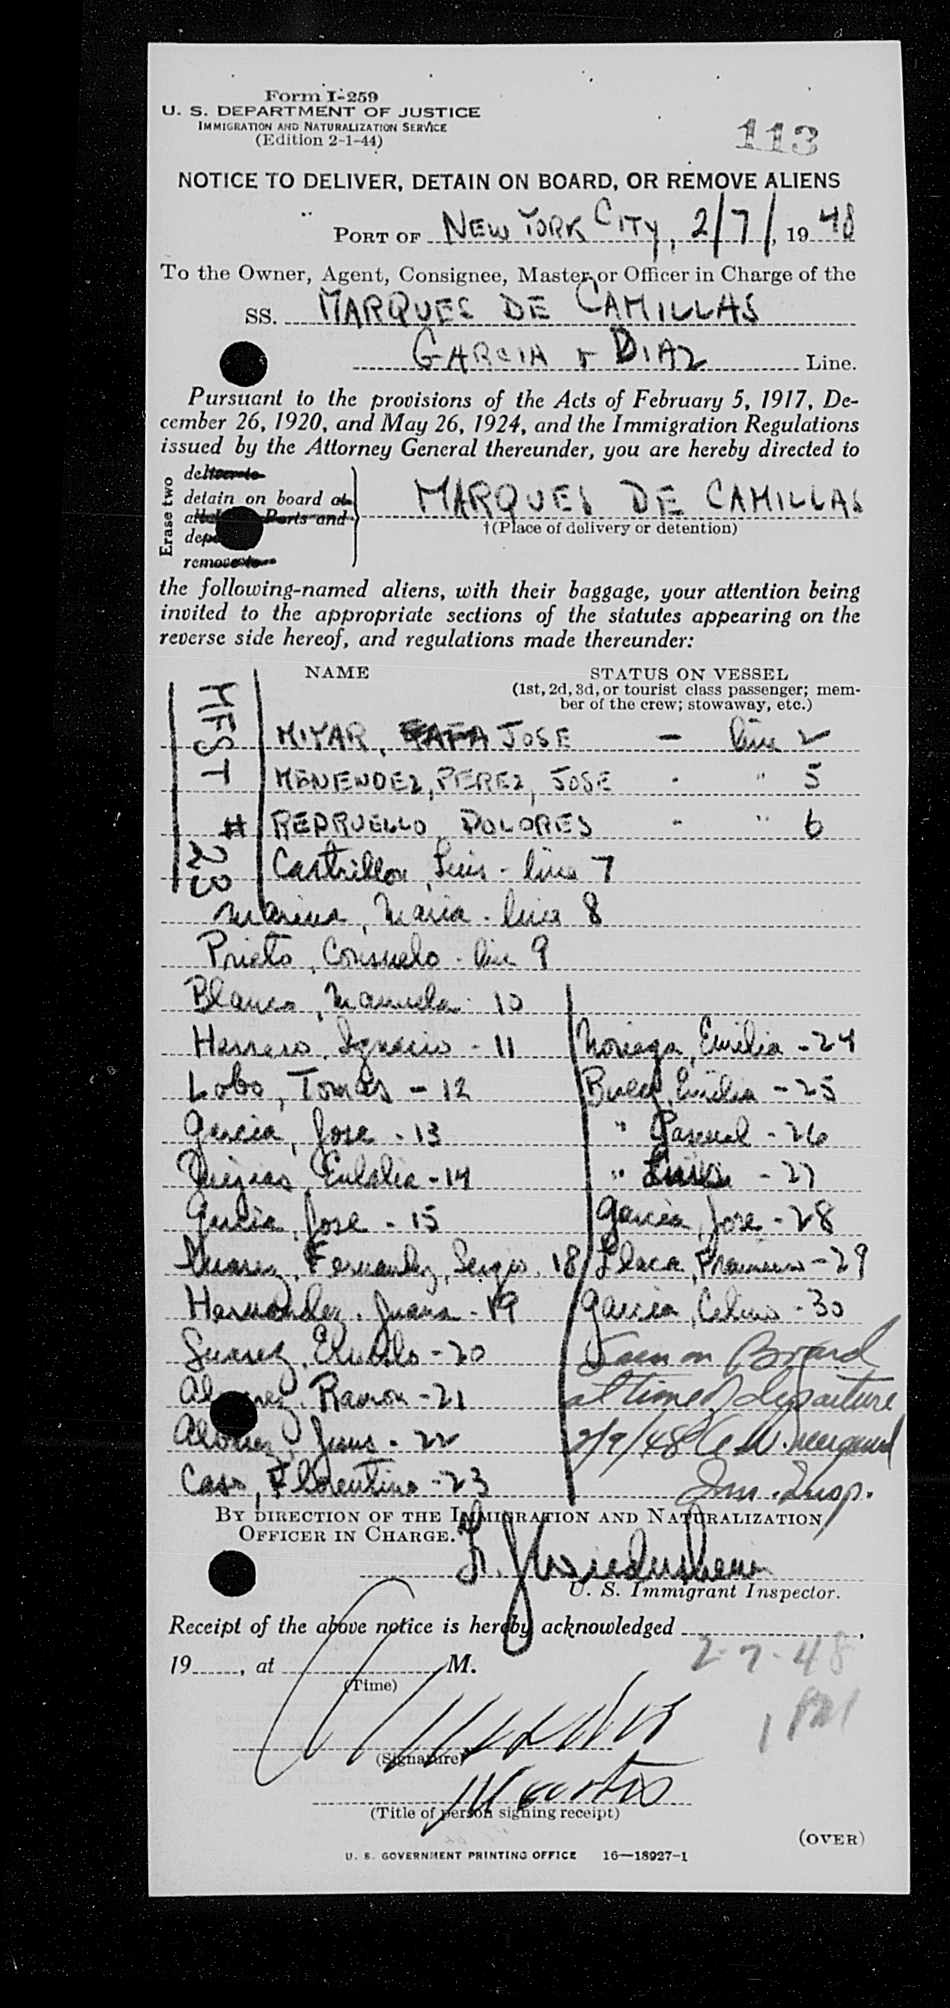 Form I-259
U. S. DEPARTMENT OF JUSTICE
IMMIGRATION AND NATURALIZATION SERVICE
(Edition 2-1-44)
113
NOTICE TO DELIVER, DETAIN ON BOARD, OR REMOVE ALIENS
PORT OF NEW YORK CITY, 2/7/, 1948
To the Owner, Agent, Consignee, Master, or Officer in Charge of the
SS. MARQUES DE CAMILLAS
GARCIA & DIAZ Line.
Pursuant to the provisions of the Acts of February 5, 1917, De-
cember 26, 1920, and May 26, 1924, and the Immigration Regulations
issued by the Attorney General thereunder, you are hereby directed to
Erase two
deliver to
detain on board at
Ports and
remove to
MARQUES DE CAMILLAS
†(Place of delivery or detention)
the following-named aliens, with their baggage, your attention being
invited to the appropriate sections of the statutes appearing on the
reverse side hereof, and regulations made thereunder:
NAME
STATUS ON VESSEL
(1st, 2d, 3d, or tourist class passenger; mem-
ber of the crew; stowaway, etc.)
MFST # 23
MIYAR, JOSE - line 2
MENENDEZ, PEREZ, JOSE - " 5
REDRUELLO, DOLORES - " 6
Castrillon, Luis - line 7
Marina, Maria - line 8
Prieto, Consuelo - line 9
Blanco, Manuela - 10
Herrero, Ignacio - 11
Lobo, Tomas - 12
Garcia, Jose - 13
Eulalia - 14
Garcia, Jose - 15
Suarez, Fernandez, Sergio. 18
Hernandez, Juana - 19
Suarez, - 20
Ramon - 21
Jesus - 22
Caso, Florentino - 23
Noriega, Emilia - 24
Emilia - 25
" Pascual - 26
" - 27
Garcia, Jose - 28
Llaca, - 29
Garcia, Celino - 30
Seen on Board
at time of departure
2/9/48
Imm. Insp.
BY DIRECTION OF THE IMMIGRATION AND NATURALIZATION
OFFICER IN CHARGE.
U. S. Immigrant Inspector.
Receipt of the above notice is hereby acknowledged
2-7-48
19 , at M.
(Time)
1 PM
(Signature)
(Title of person signing receipt)
(OVER)
U. S. GOVERNMENT PRINTING OFFICE 16—18927-1